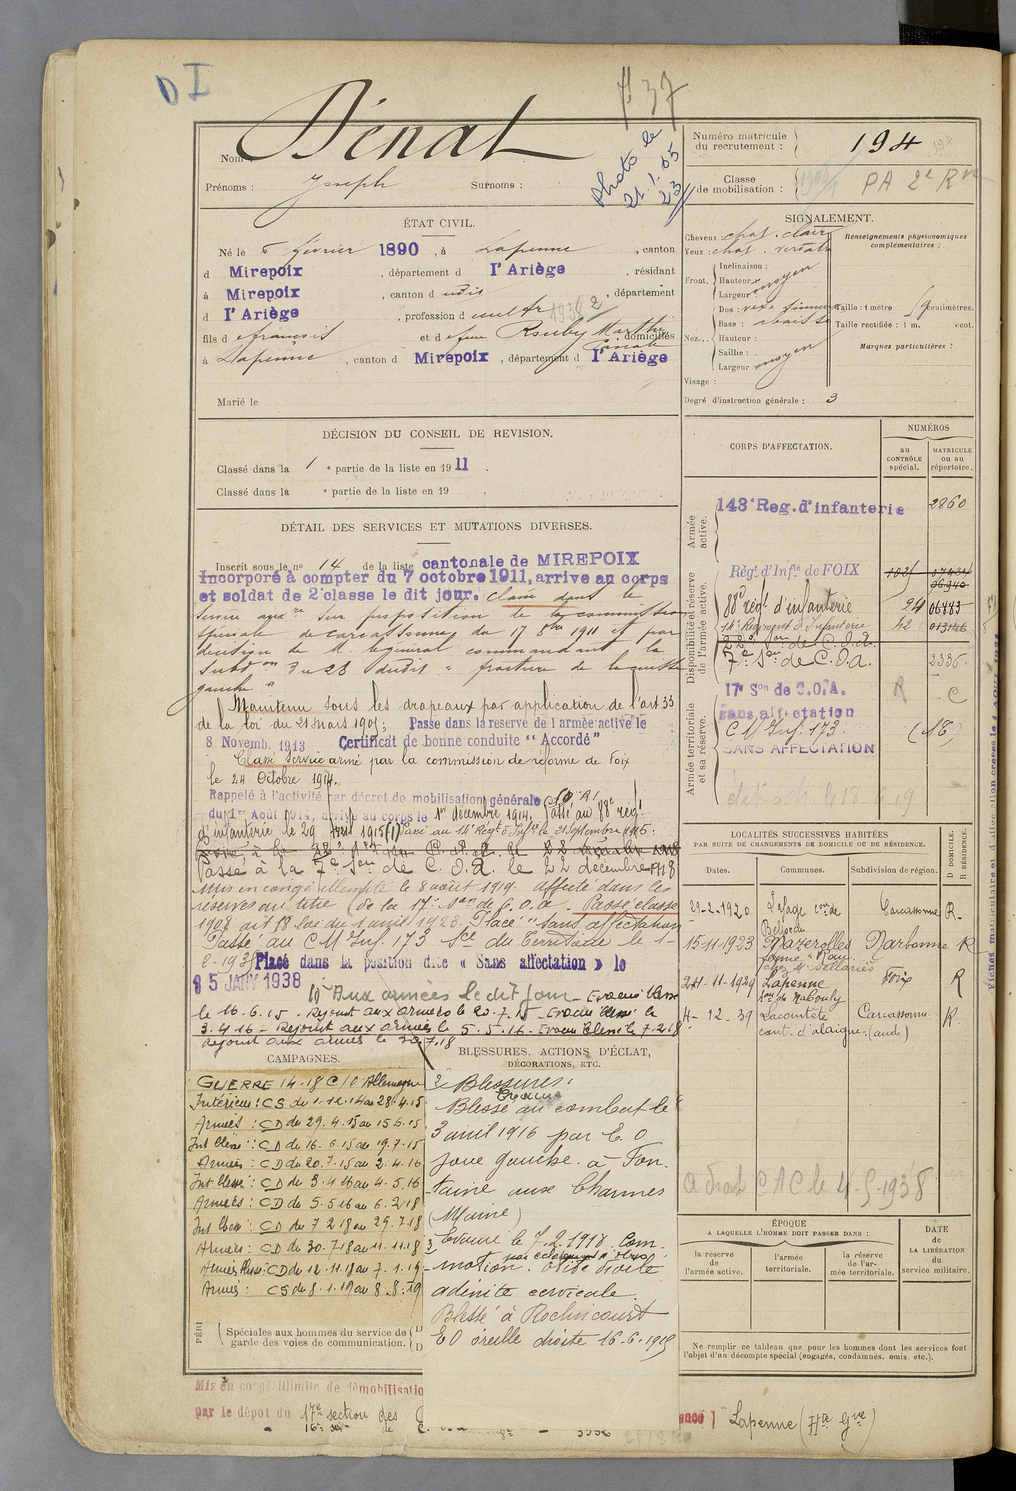 D I
737
Nom Dénat
Prénoms : Joseph Surnoms :
Photo le
21.1.65
23
Numéro matricule
du recrutement : 194
Classe
de mobilisation : PA 2e Rve
ÉTAT CIVIL.
Né le 5 février 1890, à Lapenne, canton
d Mirepoix, département d l'Ariège, résidant
à Mirepoix, canton d udit, département
d l'Ariège, profession d cultr
fils d e françois et d e feue Rouby Marthe, domiciliés
à Lapenne, canton d Mirepoix, département d l'Ariège
Marié le
SIGNALEMENT.
Cheveux chat. clair
Yeux : chat. verdatre
Renseignements physionomiques
complémentaires :
Front. Inclinaison :
Hauteur moyen
Largeur
Nez... Dos : vexe
Base : abaissé
Hauteur :
Saillie :
Largeur moyen
Taille : 1 mètre centimètres.
Taille rectifiée : 1 m. cent.
Marques particulières :
Visage :
Degré d'instruction générale : 3
DÉCISION DU CONSEIL DE REVISION.
Classé dans la 1 e partie de la liste en 1911.
Classé dans la e partie de la liste en 19 .
CORPS D'AFFECTATION.
NUMÉROS
au
CONTRÔLE
spécial.
MATRICULE
ou au
répertoire.
Armée
active.
143e Reg. d'infanterie 2860
Disponibilité et réserve
de l'armée active.
Régt d'Infie de FOIX
88e régt d'infanterie 24 06483
14e Régiment d'Infanterie 42 013146
7e Son de C.O.A. 2336
Armée territoriale
et sa réserve.
17e Son de C.O.A. R C
sans affectation
C M Inf. 173
SANS AFFECTATION
DÉTAIL DES SERVICES ET MUTATIONS DIVERSES.
Inscrit sous le no 14 de la liste cantonale de MIREPOIX
Incorporé à compter du 7 octobre 1911, arrive au corps
et soldat de 2e classe le dit jour. classé dans le
service auxre sur proposition de la commission
spéciale de Carcassonne du 17 8bre 1911 et par
décision de M. le général commandant la
Subdon du 28 dudit « fracture de la
gauche »
Maintenu sous les drapeaux par application de l'art 33
de la loi du 21 mars 1905; Passé dans la réserve de l'armée active le
8 Novemb. 1913 Certificat de bonne conduite "Accordé"
Classé Service armé par la commission de réforme de Foix
le 24 Octobre 1914.
Rappelé à l'activité par décret de mobilisation générale
du 1er Août 1914, arrivé au corps le 1er décembre 1914. Passé au 88e régt
d'infanterie le 29 avril 1915 (1) Passé au 14e Régt d'Infrie le 21 septembre 1915.
Passé à la 7e Son de C.O.A. le 22 décembre 1918
Mis en congé illimité le 8 août 1919. affecté dans les
réserves au titre de la 17e Son de C.O.A. Passé classe
1908 art 58 loi du 1 avril 1923. Placé "sans affectation
Passé au C M Inf. 173 Sce du Territoire le 1-
2-1935 Placé dans la position dite « Sans affectation » le
15 JANV 1938
(1) Aux armées le dit jour - Evacué blessé
le 16.6.15. Rejoint aux armées le 20.7.15 - Evacué blessé le
3.4.16 - Rejoint aux armées le 5.5.16 - Evacué blessé le 7.2.18
rejoint aux armées le 30.7.18
LOCALITÉS SUCCESSIVES HABITÉES
PAR SUITE DE CHANGEMENTS DE DOMICILE OU DE RÉSIDENCE.
D DOMICILE.
R RÉSIDENCE.
Dates. Communes. Subdivision de région.
29-2-1920 Lafage con de Belpech Carcassonne R
15-11-1923 Mazerolles Narbonne R
24-11-1929 Lapenne Foix R
4-12-39 Lacourtète Carcassonne R
cant. d'alaigne (aude)
CAMPAGNES.
GUERRE 14-18 C/O Allemagne
Intérieur : CS du 1.12.14 au 28.4.15
Armées : CD du 29.4.15 au 15.6.15
Int blessé : CD du 16.6.15 au 19.7.15
Armées : CD du 20.7.15 au 2.4.16
Int blessé : CD du 3.4.16 au 4.5.16
Armées : CD du 5.5.16 au 6.2.18
Int blessé : CD du 7.2.18 au 29.7.18
Armées : CD du 30.7.18 au 11.11.18
Armées : CD du 12.11.18 au 7.1.19
Armées : CS du 8.1.19 au 8.8.19
BLESSURES, ACTIONS D'ÉCLAT,
DÉCORATIONS, ETC.
2 Blessures :
Blessé au combat le
3 avril 1916 par E.O
joue gauche. à Fon-
taine aux Charmes
(Marne)
Evacué le 7.2.1918. Com-
motion par éclatement d'obus. otite droite
adénite cervicale.
Blessé à Roclincourt
EO oreille droite 16-6-1915
a droit CAC le 4-5-1938
ÉPOQUE
A LAQUELLE L'HOMME DOIT PASSER DANS :
la réserve
de
l'armée active.
l'armée
territoriale.
la réserve
de l'ar-
mée territoriale.
DATE
de
LA LIBÉRATION
du
service militaire.
Ne remplir ce tableau que pour les hommes dont les services font
l'objet d'un décompte spécial (engagés, condamnés, omis, etc.).
PÉRI
Spéciales aux hommes du service de
garde des voies de communication.
Mis en congé illimité de démobilisatio
par le dépôt du 17e section des
ence] Lapenne (Hte Gne)